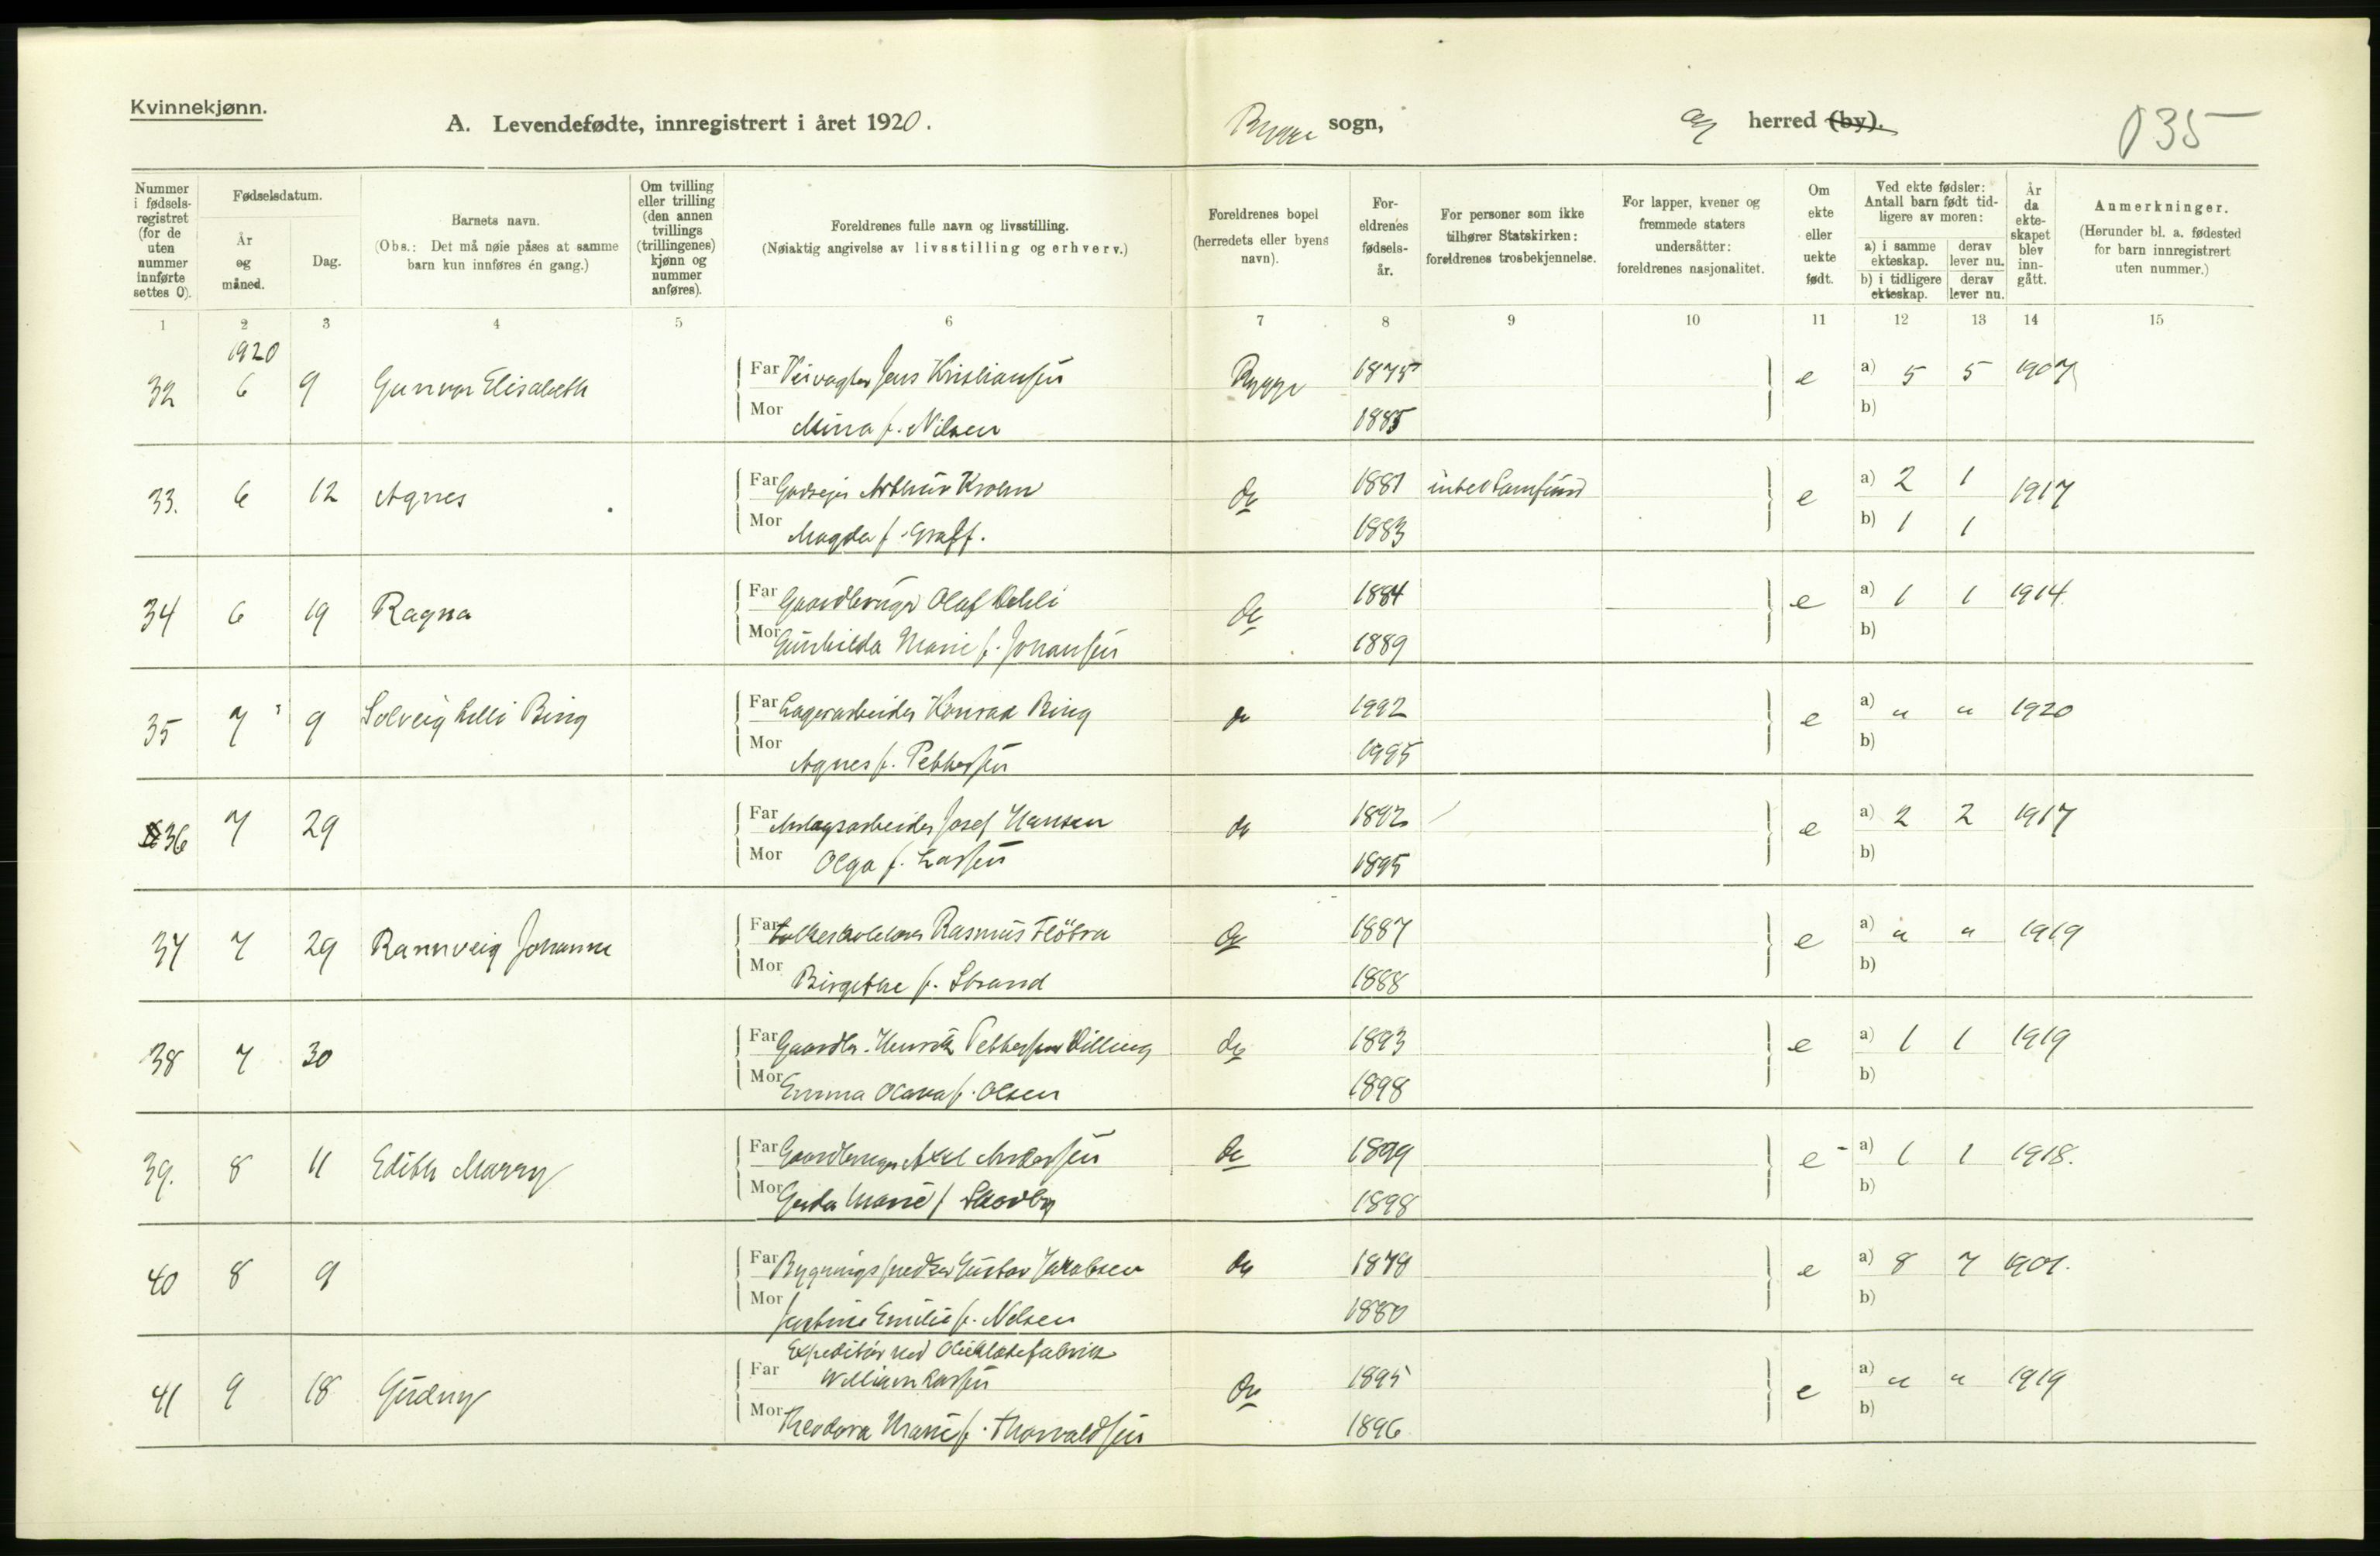 Kvinnekjønn.
A. Levendefødte, innregistrert i året 1920.
Rygge sogn,
herred (by).
035
Nummer i fødsels-registret (for de uten nummer innførte settes 0).
Fødselsdatum.
År og måned.
Dag.
Barnets navn.
(Obs.: Det må nøie påses at samme barn kun innføres én gang.)
Om tvilling eller trilling (den annen tvillings (trillingenes) kjønn og nummer anføres).
Foreldrenes fulle navn og livsstilling.
(Nøiaktig angivelse av livsstilling og erhverv.)
Foreldrenes bopel (herredets eller byens navn).
For-eldrenes fødsels-år.
For personer som ikke tilhører Statskirken: foreldrenes trosbekjennelse.
For lapper, kvener og fremmede staters undersåtter: foreldrenes nasjonalitet.
Om ekte eller uekte født.
Ved ekte fødsler: Antall barn født tid-ligere av moren:
a) i samme ekteskap.
derav lever nu.
b) i tidligere ekteskap.
derav lever nu.
År da ekte-skapet blev inn-gått.
Anmerkninger.
(Herunder bl. a. fødested for barn innregistrert uten nummer.)
1 2 3 4 5 6 7 8 9 10 11 12 13 14 15
1920
32 6 9 Gunvor Elisabeth Far Veivogter Jens Kristiansen Rygge 1875 e a) 5 5 1907
Mor Mina f. Nilsen 1885 b)
33. 6 12 Agnes Far Godseier Arthur Krohn do 1881 intet Samfund e a) 2 1 1917
Mor Magda f. Graff. 1883 b) 1 1
34 6 19 Ragna Far Gaardbruger Olaf do 1884 e a) 1 1 1914
Mor Gunhilda Marie f. Johansen 1889 b)
35 7 9 Solveig Lilli Bing Far Lagerarbeider Konrad Bing do 1992 e a) " " 1920
Mor Agnes f. Pettersen 1995 b)
36 7 29 Far Anlagsarbeider Josef Hansen do 1892 e a) 2 2 1917
Mor Olga f. Larsen 1895 b)
37 7 29 Rannveig Johanne Far Rasmus do 1887 e a) " " 1919
Mor Birgithe f. Strand 1888 b)
38 7 30 Far Gaardbr. Henrik Pettersen Dilling do 1893 e a) 1 1 1919
Mor Emma Olava f. Olsen 1898 b)
39. 8 11 Edith Marry Far Gaardbruger Axel Andersen do 1899 e a) 1 1 1918.
Mor Gerda Marie f 1898 b)
40 8 9 Far Bygningssnedker Gustav Jakobsen do 1879 e a) 8 7 1901.
Mor Emilie f. Nelsen 1880 b)
Expeditør ved Olieklædefabrik
41 9 18 Gudny Far William Larsen do 1895 e a) " " 1919
Mor Theodora Marie f. Thorvaldsen 1896 b)